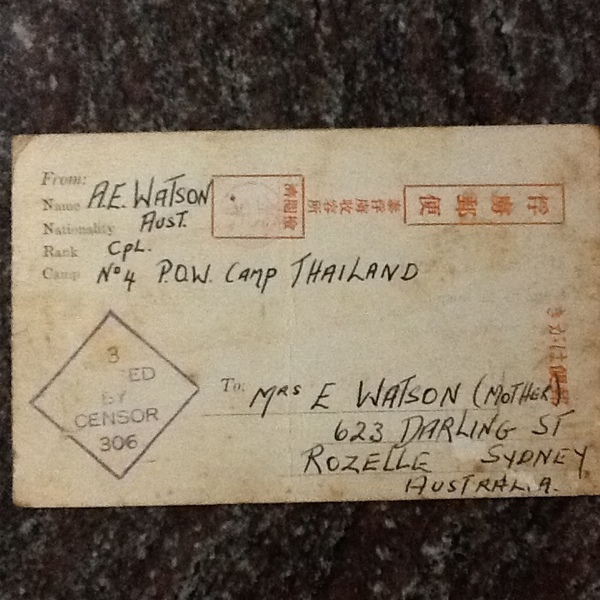 From:
Name A.E. WATSON
Nationality AUST.
Rank CPL.
Camp Nº4 P.O.W. CAMP THAILAND
俘虜郵便
泰俘虜収容所
検閲済
3
ED
BY
CENSOR
306
To: MRS E WATSON (MOTHER)
623 DARLING ST
ROZELLE SYDNEY
AUSTRALIA.